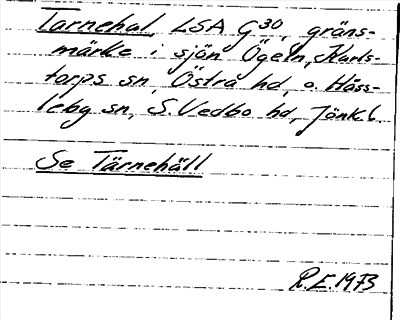 Tarnehal, LSA G 30, gräns-
märke i sjön Ögeln, Karls-
torps sn, Östra hd, o. Häss-
lebg sn, S. Vedbo hd, Jönk. l.
Se Tärnehäll
R.E. 1973